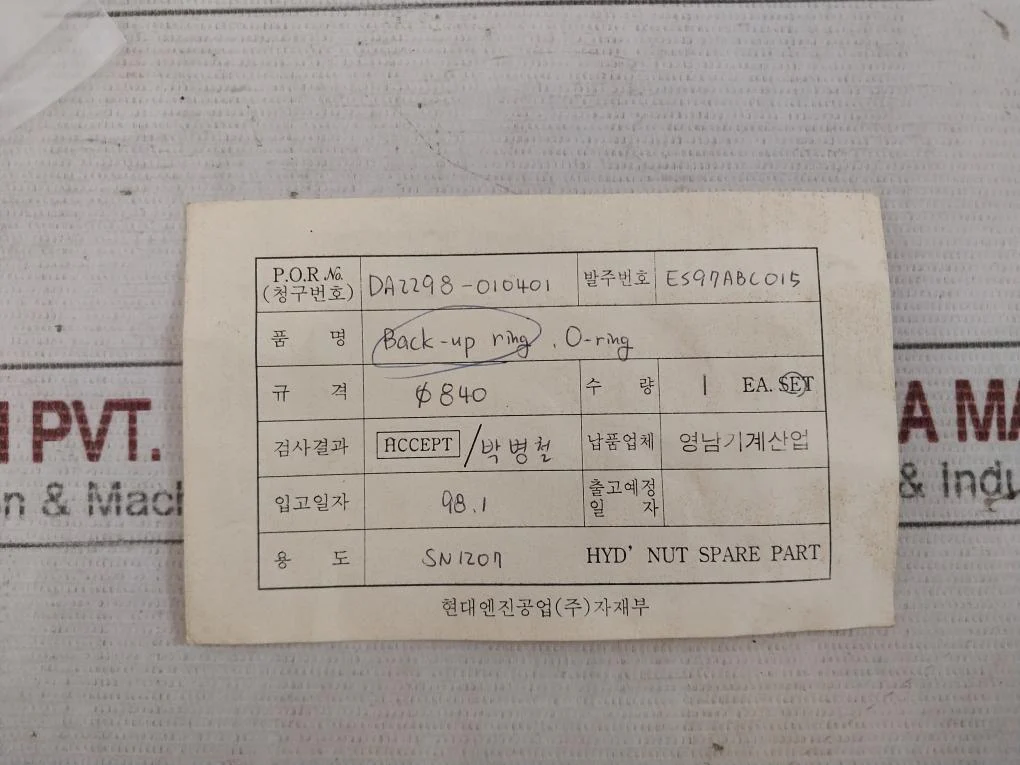 P.O.R №. (청구번호) DA2298-010401 발주번호 ES97ABC015
품 명 Back-up ring, O-ring
규 격 ϕ840 수 량 1 EA. SET
검사결과 ACCEPT / 박병철 납품업체 영남기계산업
입고일자 98.1 출고예정일 자
용 도 SN1207 HYD' NUT SPARE PART
현대엔진공업(주)자재부
PVT.
A MA
n & Mach
& Indu